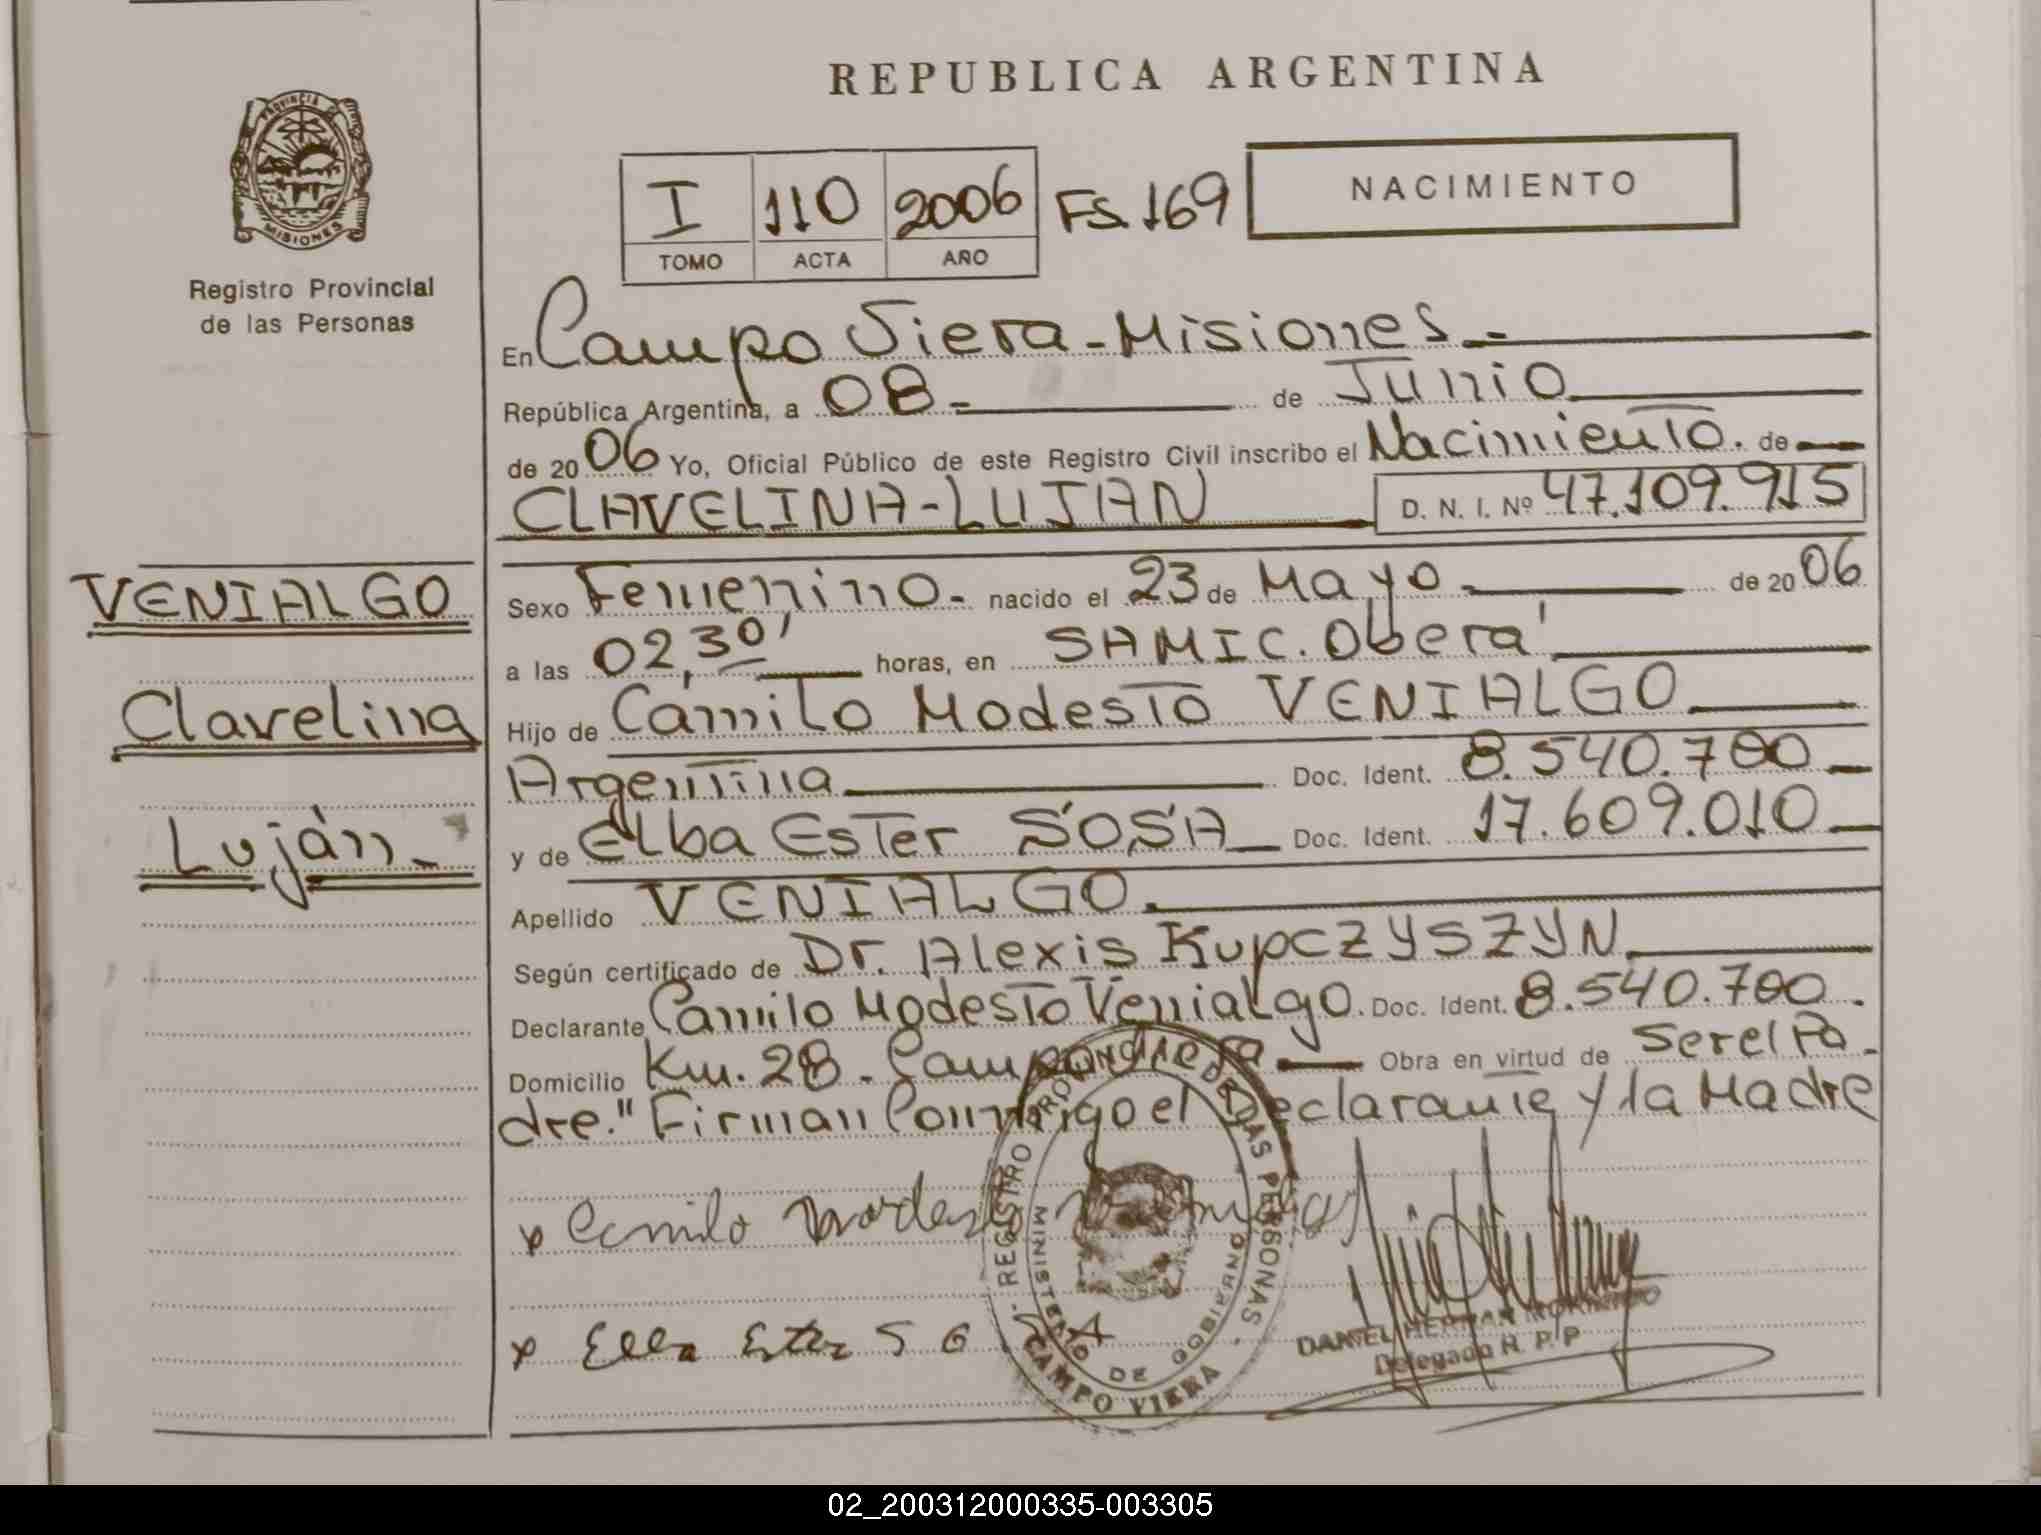 REPUBLICA ARGENTINA
PROVINCIA DE
MISIONES
Registro Provincial
de las Personas
I 110 2006 FS. 169
TOMO ACTA AÑO
NACIMIENTO
En Campo Viera - Misiones.-
República Argentina, a 08.- de Junio
de 2006 Yo, Oficial Público de este Registro Civil inscribo el Nacimiento. de
CLAVELINA-LUJAN D. N. I. Nº 47.109.915
VENIALGO
Clavelina
Luján.-
Sexo Femenino.- nacido el 23 de Mayo.- de 2006
a las 02,30' horas, en SAMIC. Oberá
Hijo de Camilo Modesto VENIALGO
Argentina Doc. Ident. 8.540.700
y de Elba Ester SOSA Doc. Ident. 17.609.010
Apellido VENIALGO.
Según certificado de Dr. Alexis KupCZYSZYN
Declarante Camilo Modesto Venialgo. Doc. Ident. 8.540.700.
Domicilio Km. 28. Campo Viera. Obra en virtud de Ser el Pa-
dre." Firman Conmigo el Declarante y la Madre
x Camilo Modesto
x Elba Ester
REGISTRO PROVINCIAL DE LAS PERSONAS
MINISTERIO DE GOBIERNO
CAMPO VIERA
DANIEL HERNAN
Delegado R. P. P
02_200312000335-003305